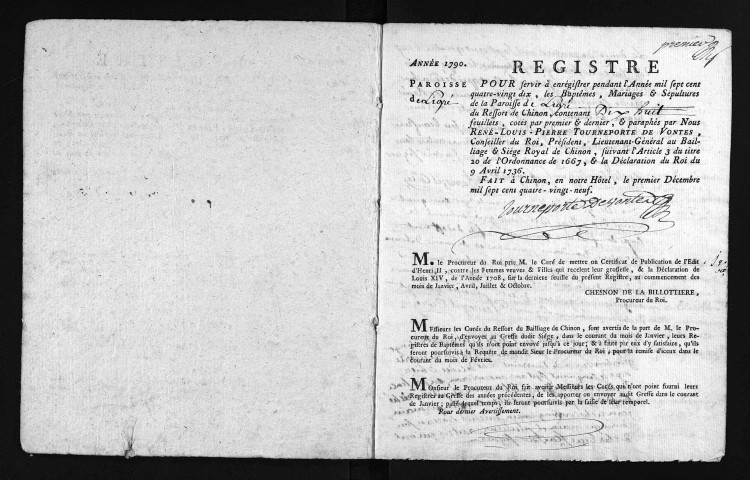 premier
ANNÉE 1790.
REGISTRE
PAROISSE
de Ligré
POUR servir à enrégistrer pendant l'Année mil sept cent
quatre-vingt dix, les Baptêmes, Mariages & Sépultures
de la Paroisse de Ligré
du Ressort de Chinon, contenant Dix huit
feuillets, cotés par premier & dernier, & paraphés par Nous
RENÉ-LOUIS-PIERRE TOURNEPORTE DE VONTES,
Conseiller du Roi, Président, Lieutenant-Général au Bail-
liage & Siége Royal de Chinon, suivant l'Article 3 du titre
20 de l'Ordonnance de 1667, & la Déclaration du Roi du
9 Avril 1736.
FAIT à Chinon, en notre Hôtel, le premier Décembre
mil sept cent quatre-vingt-neuf.
Tourneporte Devontes
M. le Procureur du Roi prie M. le Curé de mettre on Certificat de Publication de l'Edit
d'Henri II, contre les Femmes veuves & Filles qui recelent leur grossesse, & la Déclaration de
Louis XIV, de l'Année 1708, sur la derniere feuille du présent Registre, au commencement des
mois de Janvier, Avril, Juillet & Octobre.
CHESNON DE LA BILLOTTIERE,
Procureur du Roi.
Messieurs les Curés du Ressort du Bailliage de Chinon, sont avertis de la part de M. le Pro-
cureur du Roi, d'envoyer au Greffe dudit Siége, dans le courant du mois de Janvier, leurs Re-
gistres de Baptêmes qu'ils n'ont point envoyé jusqu'à ce jour; & à faute par eux d'y satisfaire, qu'ils
seront poursuivis à la Requête de mondit Sieur le Procureur du Roi, pour la remise d'iceux dans le
courant du mois de Février.
Monsieur le Procureur du Roi fait avertir Messieurs les Curés qui n'ont point fourni leurs
Registres au Greffe des années précédentes, de les apporter ou envoyer audit Greffe dans le courant
de Janvier; passé lequel temps, ils seront poursuivis par la saisie de leur temporel.
Pour dernier Avertissement.